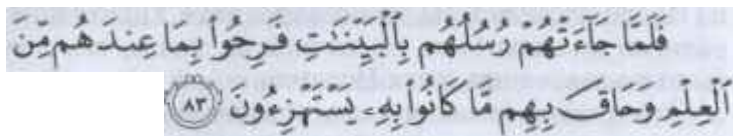 فَلَمَّا جَآءَتْهُمْ رُسُلُهُم بِٱلْبَيِّنَٰتِ فَرِحُوا۟ بِمَا عِندَهُم مِّنَ
ٱلْعِلْمِ وَحَاقَ بِهِم مَّا كَانُوا۟ بِهِۦ يَسْتَهْزِءُونَ ٨٣